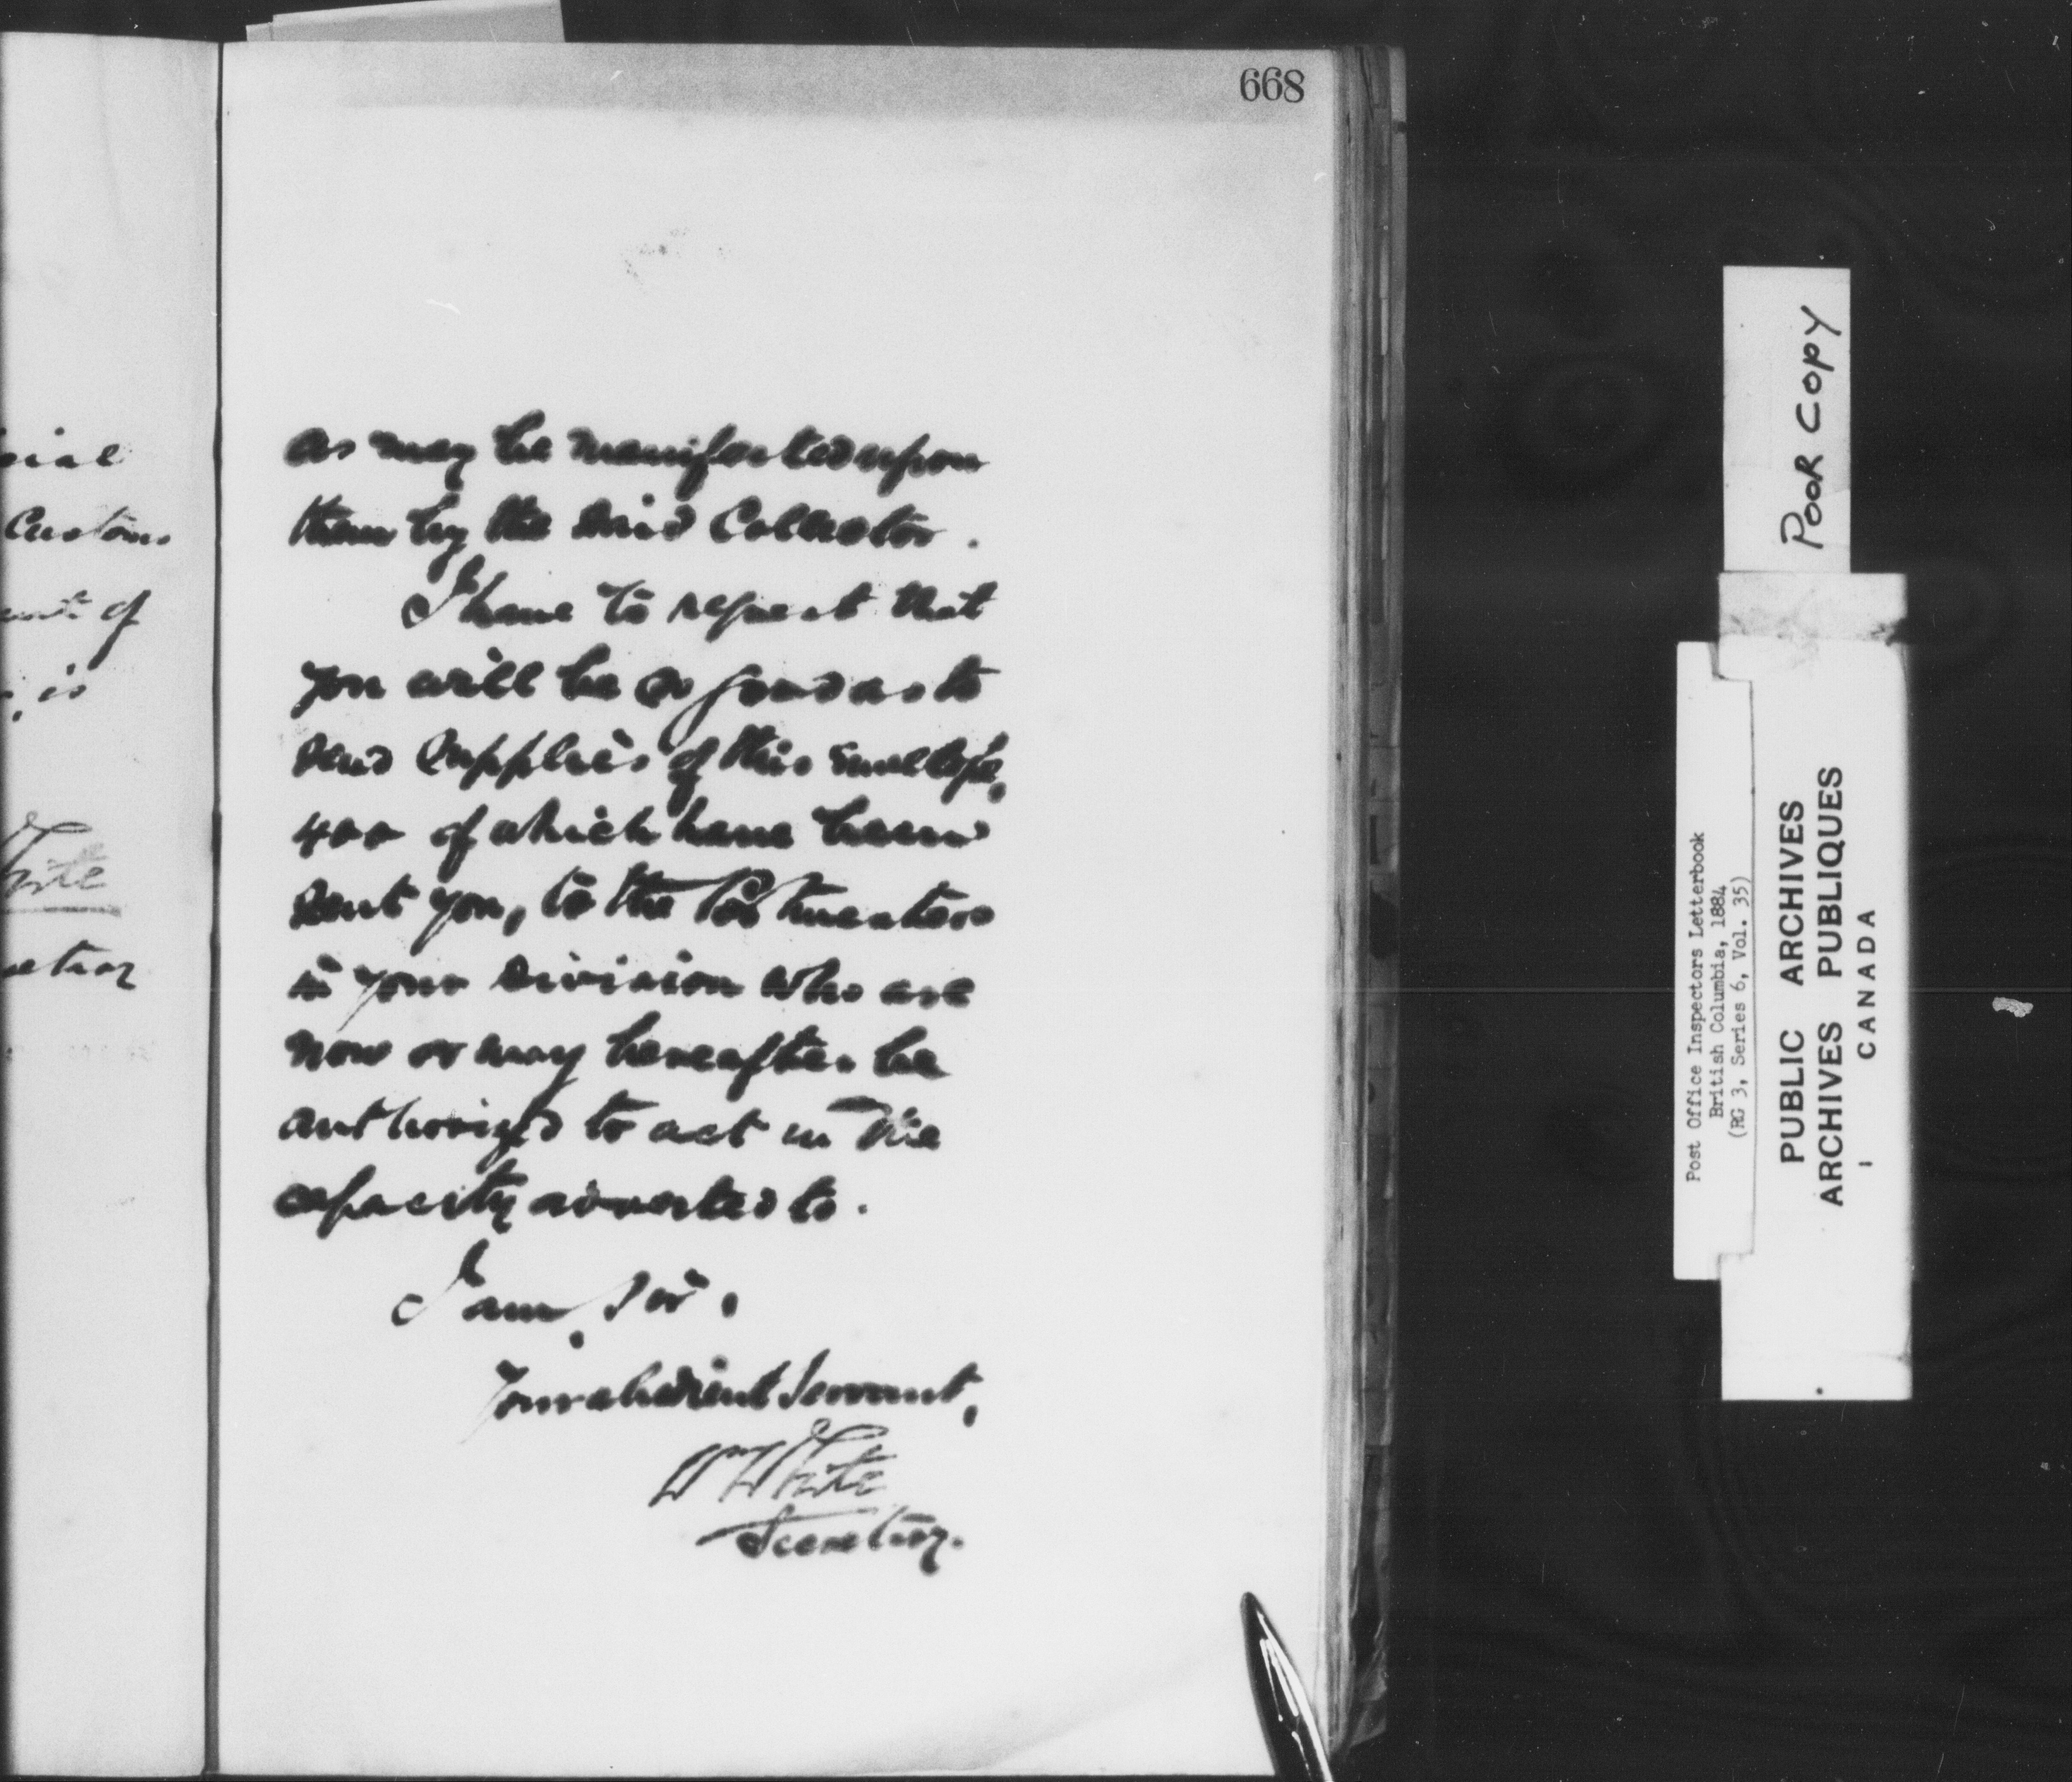 668
sial
Customs
of
is
White
as may be manifested upon
them by the said Collector.
I have to request that
you will be so good as to
send supplies of this envelope,
400 of which have been
sent you, to the Postmasters
in your Division who are
now or may hereafter be
authorized to act in the
capacity adverted to.
I am, Sir,
Your obedient Servant,
Wm White
Secretary.
POOR COPY
Post Office Inspectors Letterbook
British Columbia, 1884
(RG 3, Series 6, Vol. 35)
PUBLIC ARCHIVES
ARCHIVES PUBLIQUES
CANADA